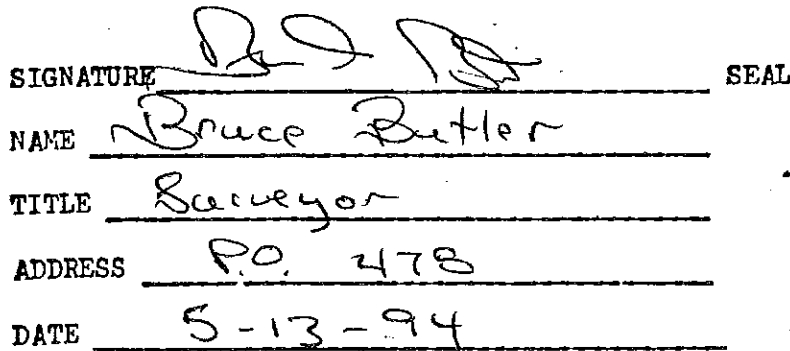 SIGNATURE SEAL
NAME Bruce Butler
TITLE Surveyor
ADDRESS P.O. 478
DATE 5-13-94